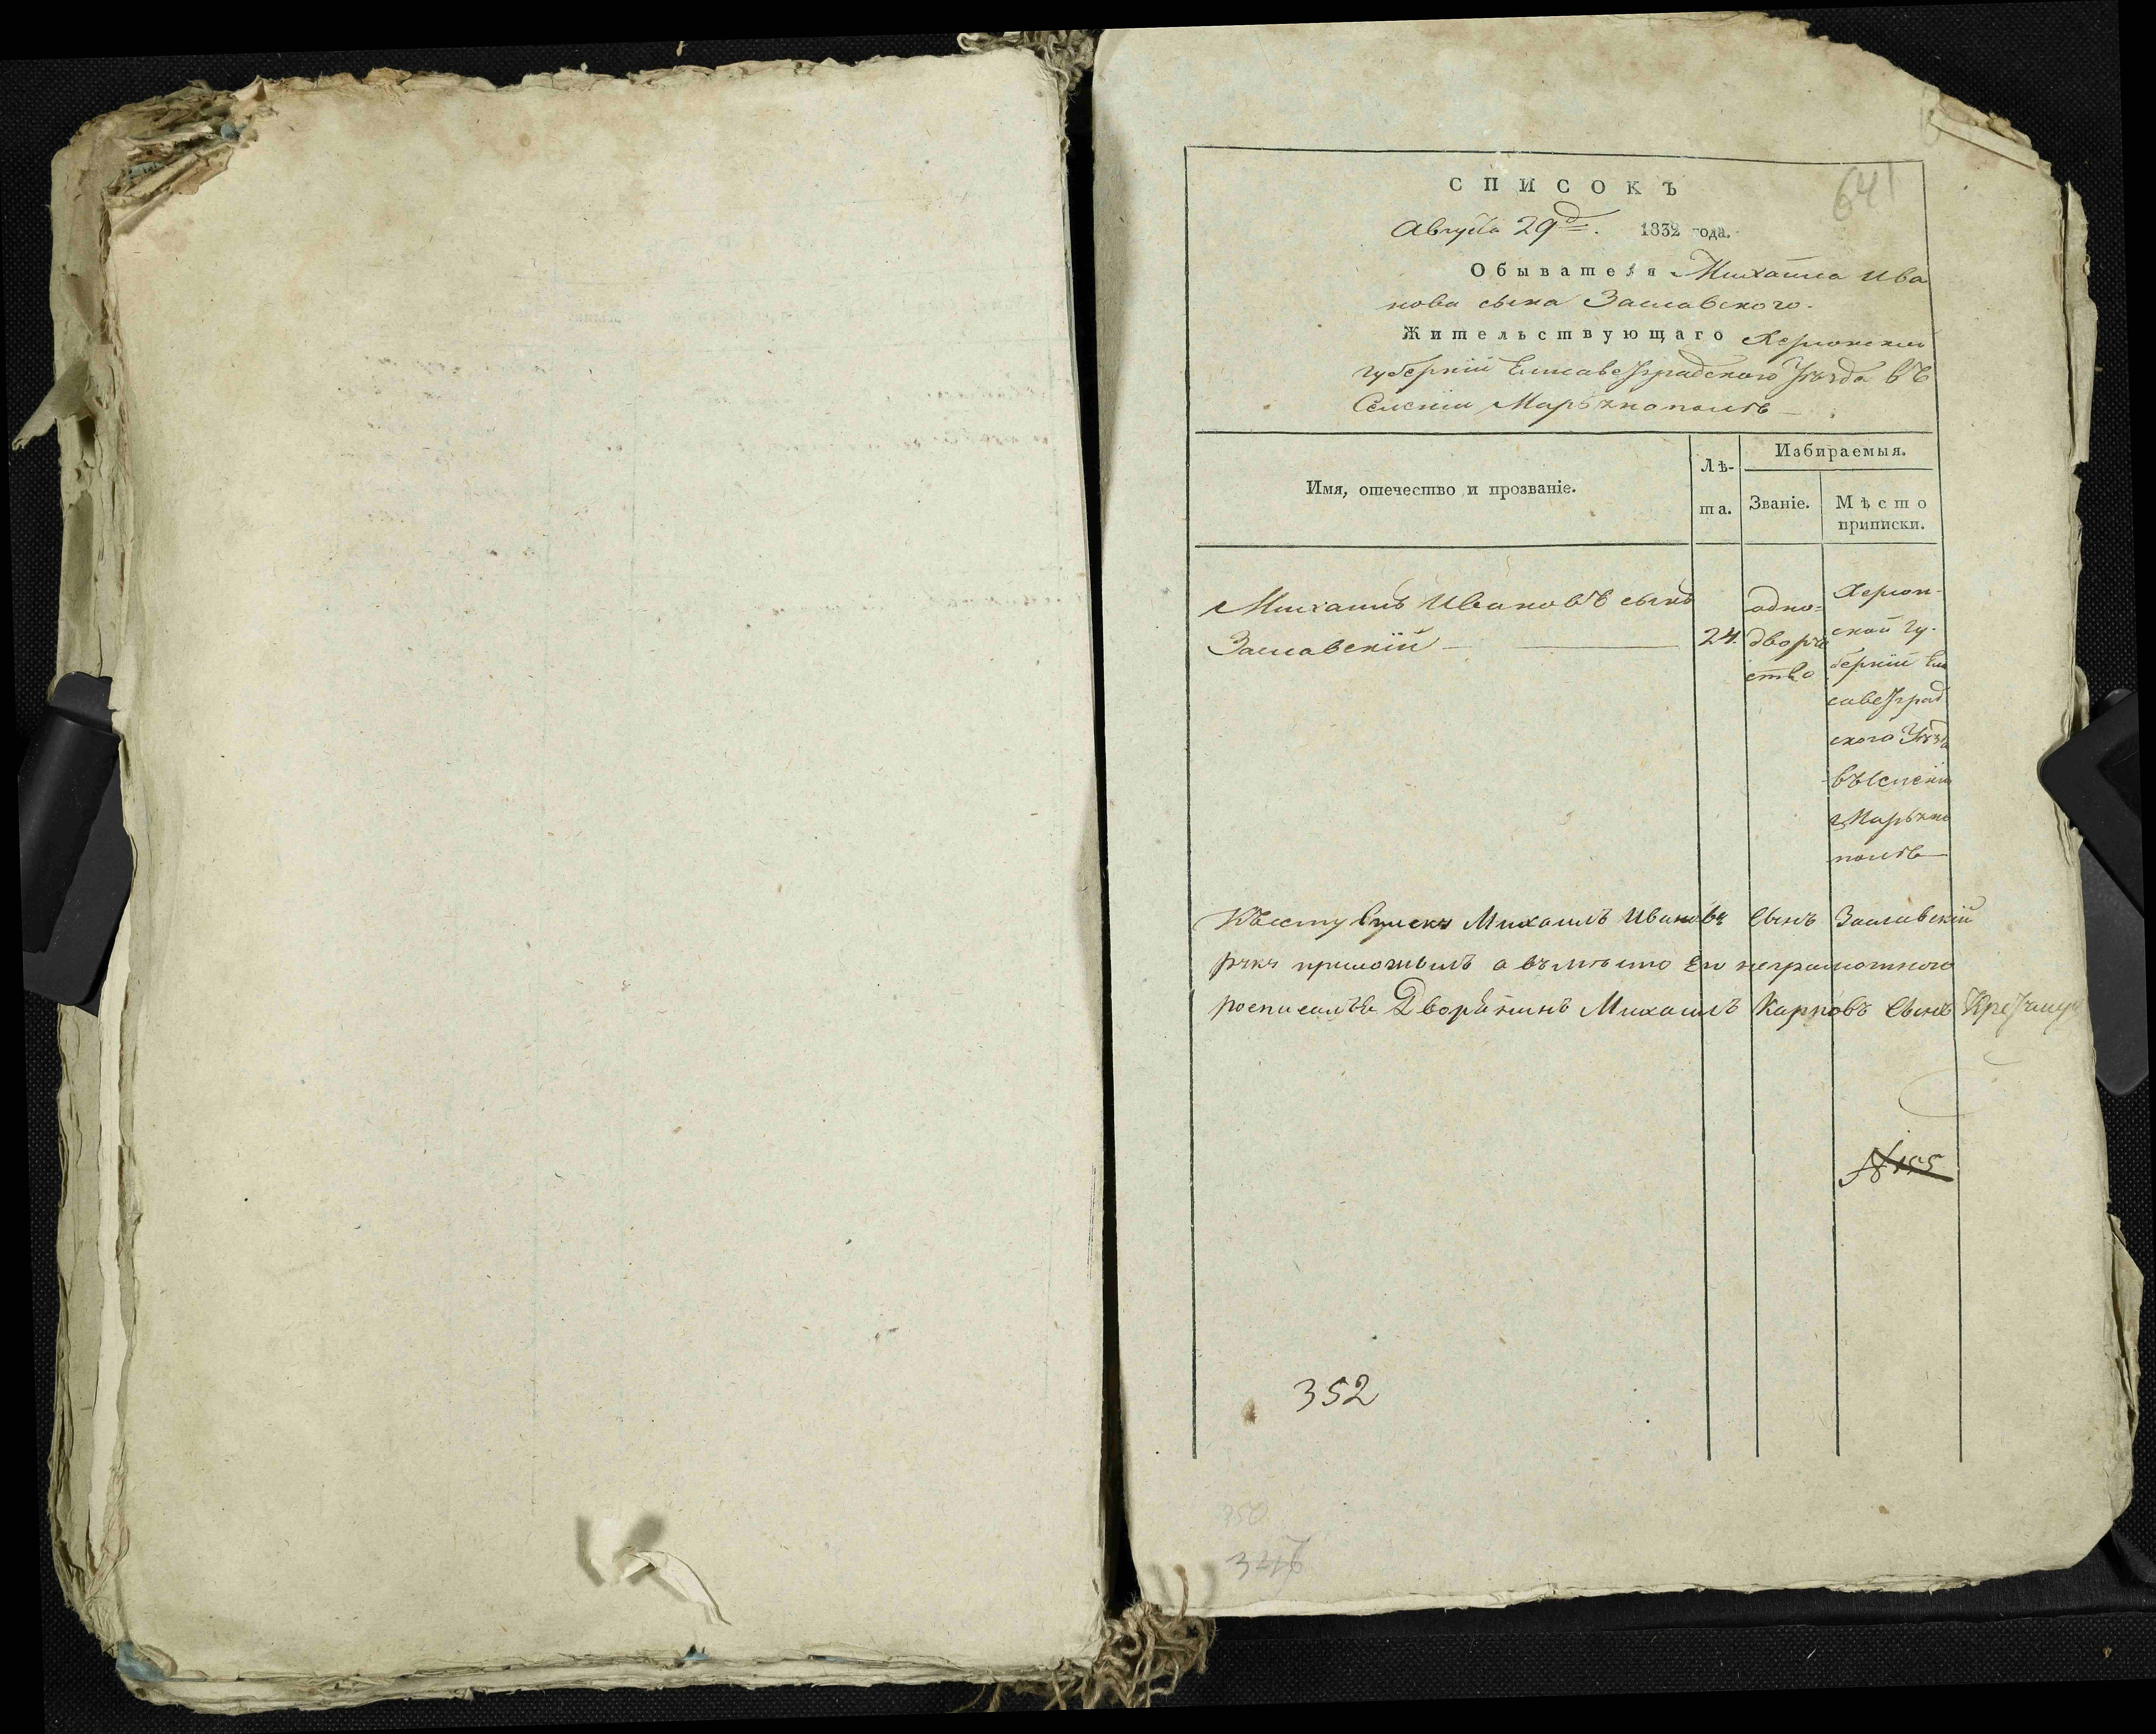 641
СПИСОКЪ
Августа 29д. 1832 года.
Обывателя Михаила Ива
нова сына Заславского.
Жительствующаго Херсонской
губерніи Елисаветградского Уѣзда въ
Селеніи Марьянополѣ
Имя, отечество и прозваніе.
Лѣ-
та.
Избираемыя.
Званіе.
Мѣсто
приписки.
Михаилъ Ивановъ сынъ
Заславскій
24.
одно=
дворче
ство
Херсон-
ской гу-
берніи Ели
саветград
ского Уѣзда
въ Селеніи
Марьяно
полѣ
Къ сему Списку Михаилъ Ивановъ Сынъ Заславскій
руку приложилъ а въ мѣсто Его неграмотного
росписалься Дворянинъ Михаилъ Карповъ Сынъ
№ 155
352
350